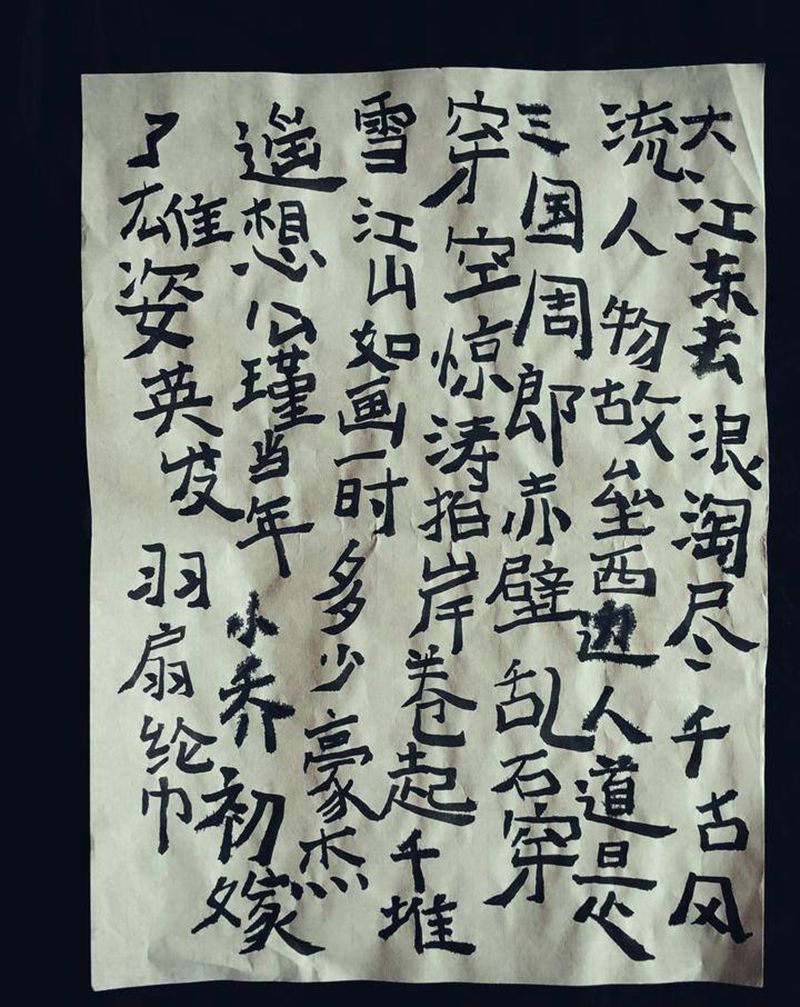 大江东去浪淘尽千古风
流人物故垒西边人道是
三国周郎赤壁乱石穿
穿空惊涛拍岸卷起千堆
雪江山如画一时多少豪杰
遥想公瑾当年小乔初嫁
了雄姿英发羽扇纶巾